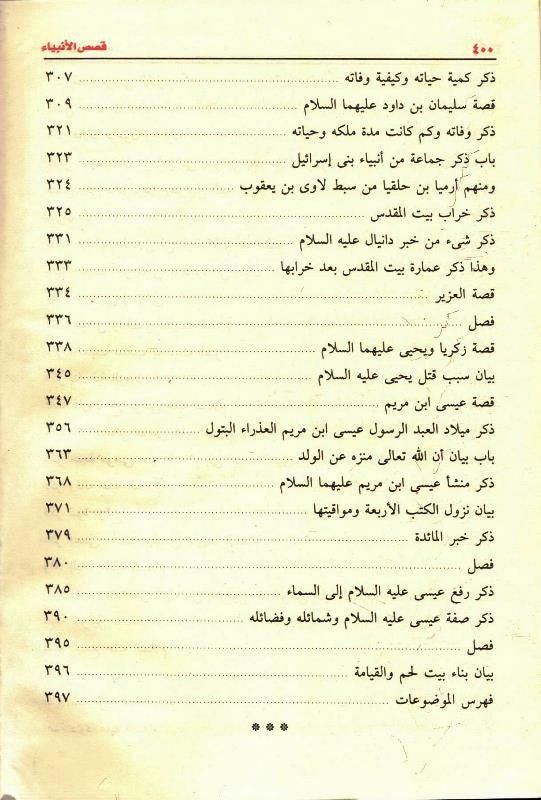 ٤٠٠ قصص الأنبياء
ذكر كمية حياته وكيفية وفاته ... ٣٠٧
قصة سليمان بن داود عليهما السلام ... ٣٠٩
ذكر وفاته وكم كانت مدة ملكه وحياته ... ٣٢١
باب ذكر جماعة من أنبياء بنى إسرائيل ... ٣٢٣
ومنهم أرميا بن حلقيا من سبط لاوى بن يعقوب ... ٣٢٤
ذكر خراب بيت المقدس ... ٣٢٥
ذكر شىء من خبر دانيال عليه السلام ... ٣٣١
وهذا ذكر عمارة بيت المقدس بعد خرابها ... ٣٣٣
قصة العزير ... ٣٣٤
فصل ... ٣٣٦
قصة زكريا ويحيى عليهما السلام ... ٣٣٨
بيان سبب قتل يحيى عليه السلام ... ٣٤٥
قصة عيسى ابن مريم ... ٣٤٧
ذكر ميلاد العبد الرسول عيسى ابن مريم العذراء البتول ... ٣٥٦
باب بيان أن الله تعالى منزه عن الولد ... ٣٦٣
ذكر منشأ عيسى ابن مريم عليهما السلام ... ٣٦٨
بيان نزول الكتب الأربعة ومواقيتها ... ٣٧١
ذكر خبر المائدة ... ٣٧٩
فصل ... ٣٨٠
ذكر رفع عيسى عليه السلام إلى السماء ... ٣٨٥
ذكر صفة عيسى عليه السلام وشمائله وفضائله ... ٣٩٠
فصل ... ٣٩٥
بيان بناء بيت لحم والقيامة ... ٣٩٦
فهرس الموضوعات ... ٣٩٧
* * *